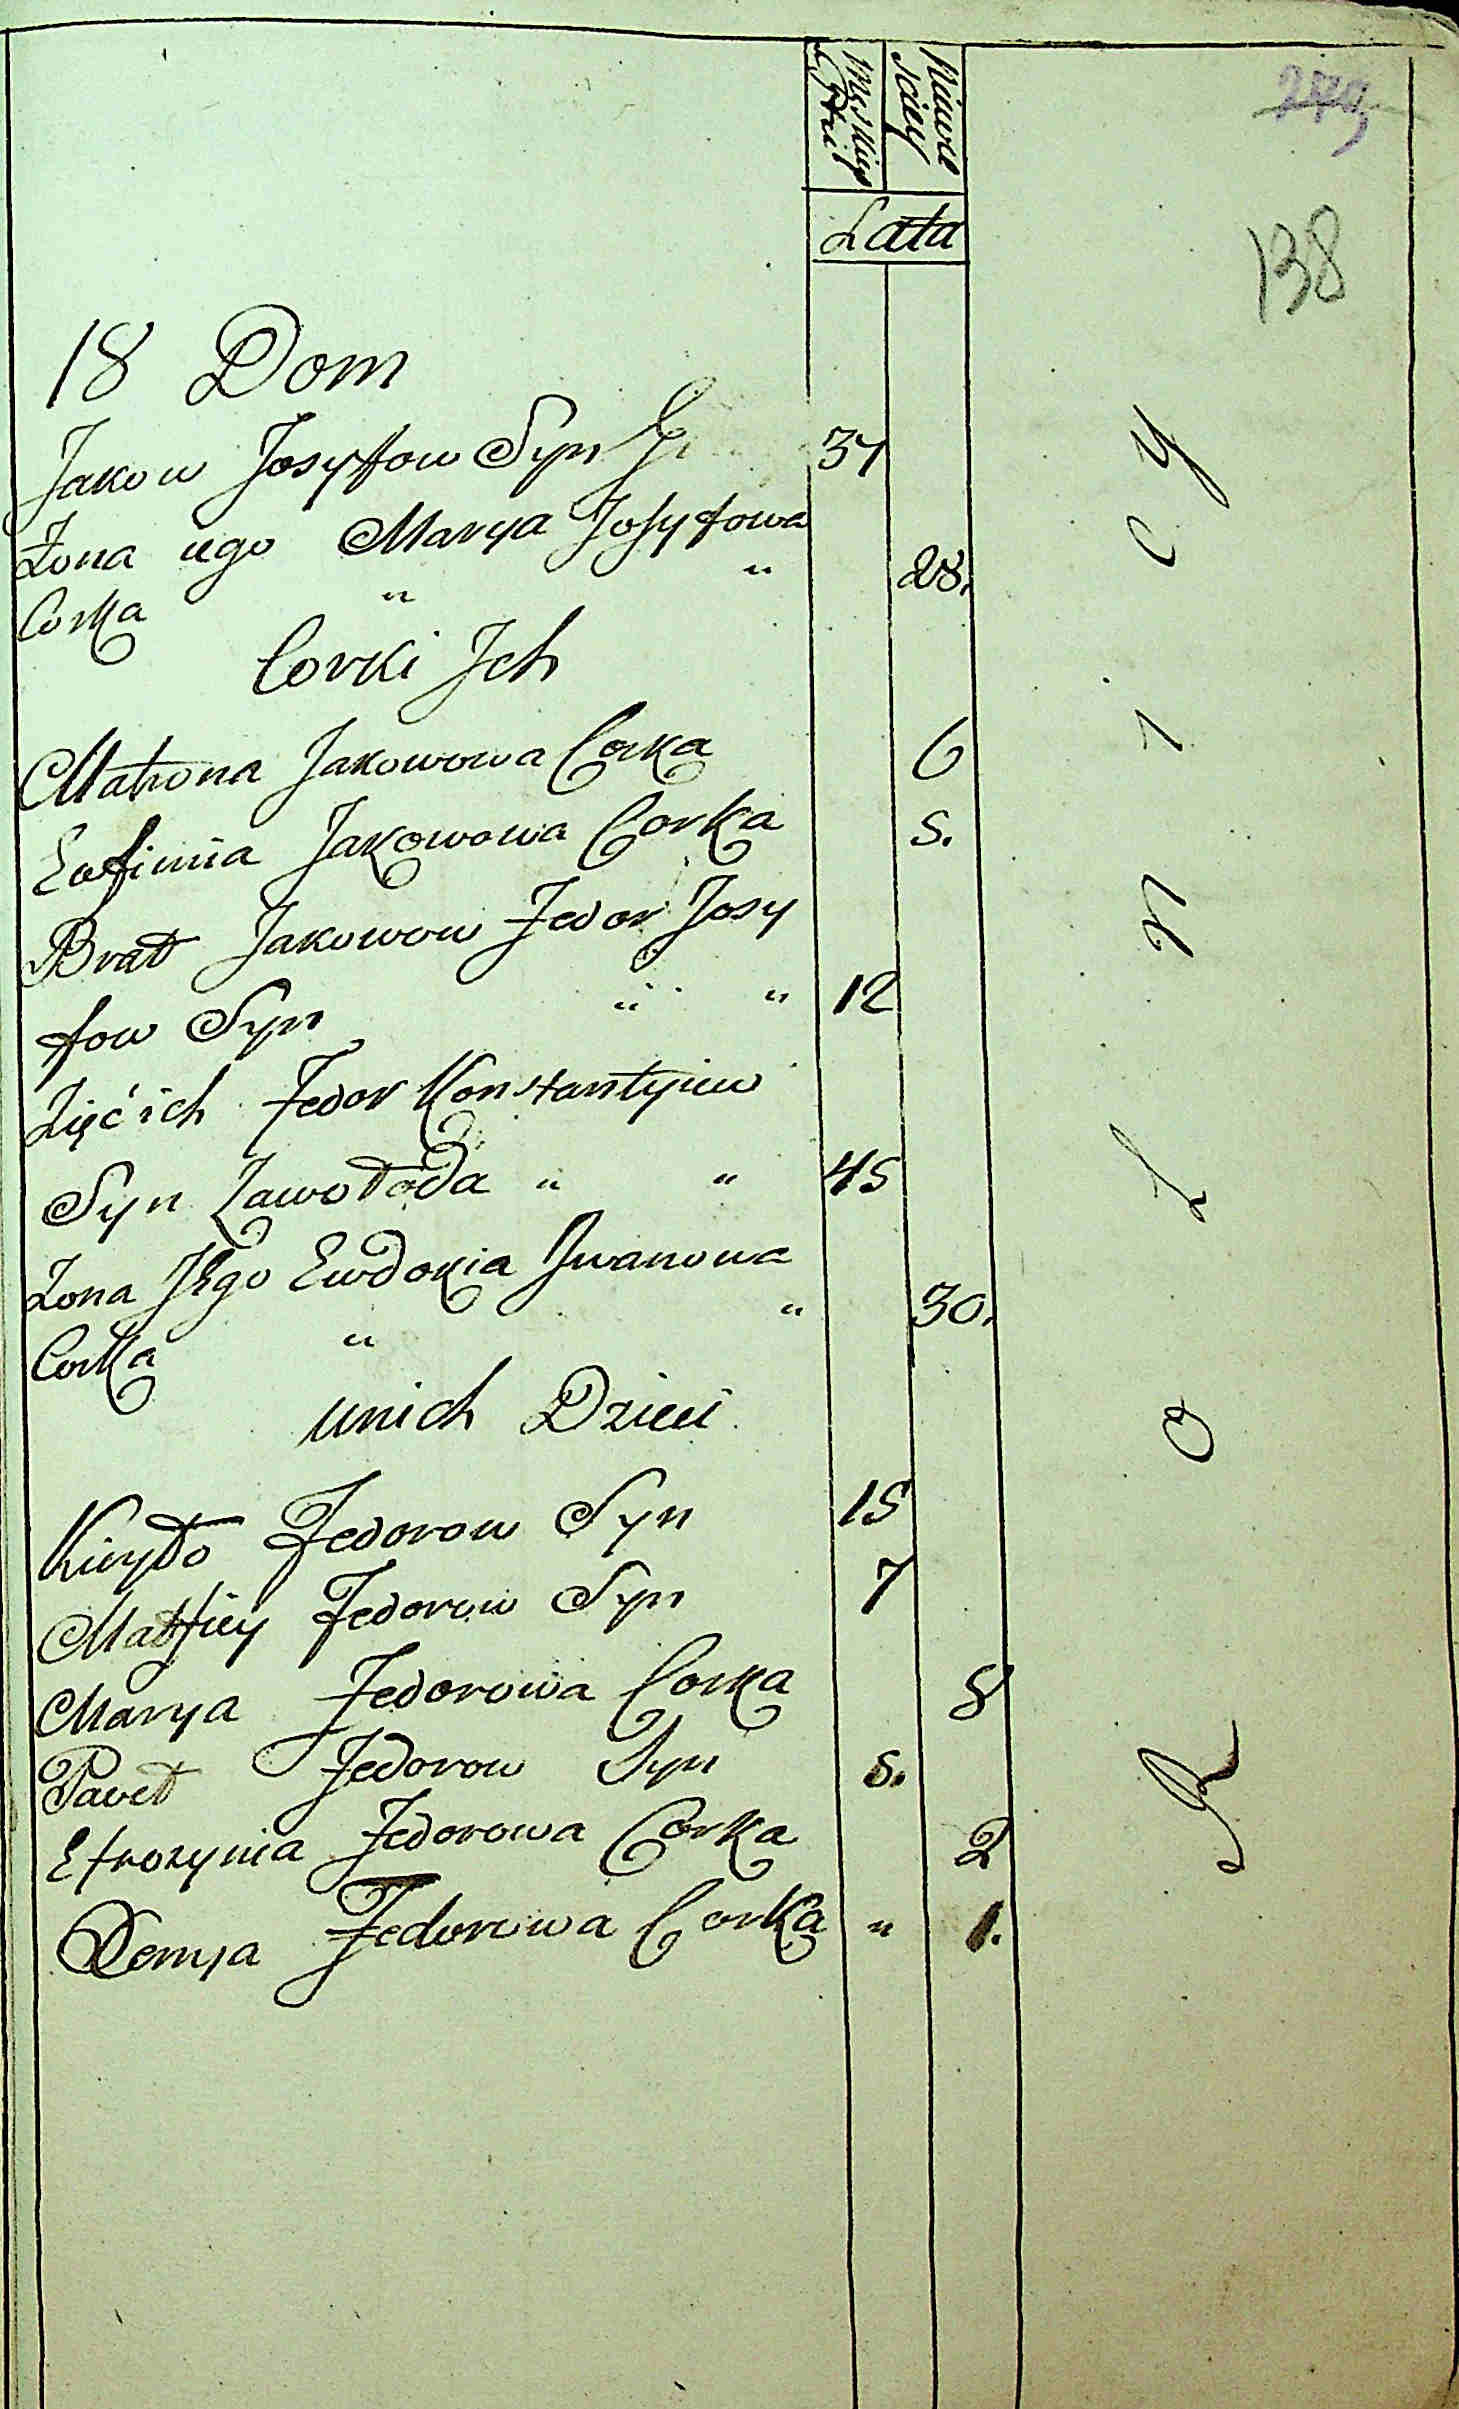 Męskiey Płci
Niewie
sciey
Lata
138
18 Dom
Jakow Josyfow Syn 37
Żona iego Marya Josyfowa
Corka " " 28.
Corki Jch
Matrona Jakowowa Corka 6
Eufimia Jakowowa Corka 5.
Brat Jakowow Fedor Josy
fow Syn " " 12
Zięć ich Fedor Konstantyiew
Syn Zawołoda " " 45
Żona Jego Ewdokia Jwanowa
Corka " " 30.
u nich Dzieci
Kiryło Fedorow Syn 15
Matfiey Fedorow Syn 7
Marya Fedorowa Corka 8
Paweł Fedorow Syn 5.
Efrozynia Fedorowa Corka 2
Fedorowa Corka " 1.
R O L N I C Y